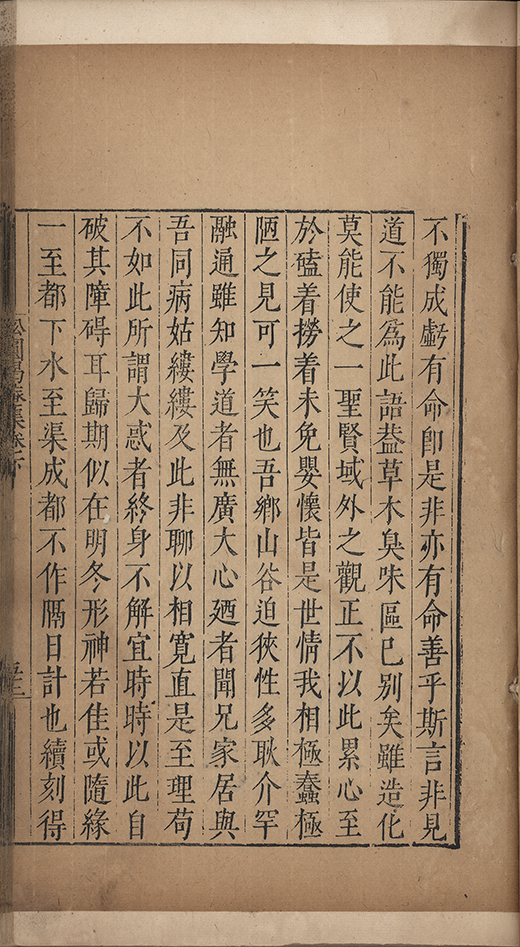 不獨成虧有命卽是非亦有命善乎斯言非見
道不能爲此語葢草木臭味區已別矣雖造化
莫能使之一聖賢域外之觀正不以此累心至
於磕着撈着未免嬰懷皆是世情我相極蠢極
陋之見可一笑也吾鄉山谷迫狹性多耿介罕
融通雖知學道者無廣大心廼者聞兄家居與
吾同病姑縷縷及此非聊以相寛直是至理苟
不如此所謂大惑者終身不解宜時時以此自
破其障碍耳歸期似在明冬形神若佳或隨緣
一至都下水至渠成都不作隔日計也續刻得